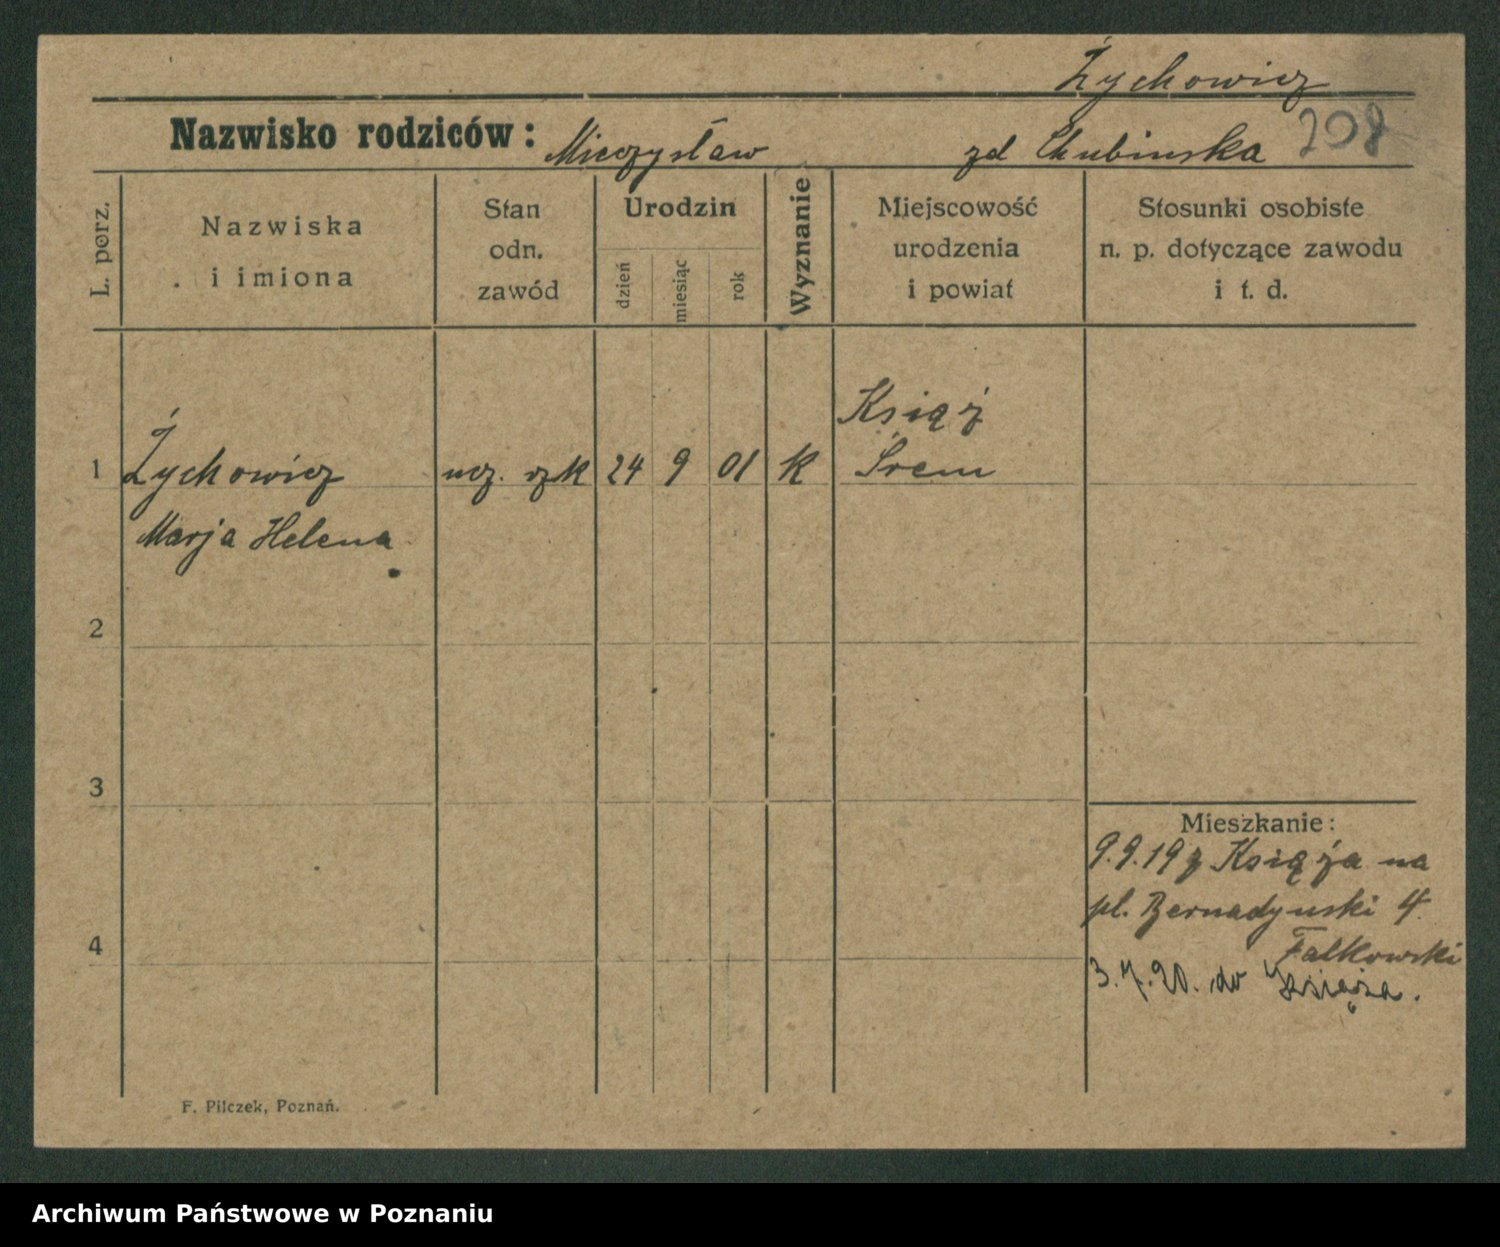 Żychowicz
Nazwisko rodziców: Mieczysław zd Chubinska 208
L. porz.
Nazwiska i imiona
Stan odn. zawód
Urodzin
dzień
miesiąc
rok
Wyznanie
Miejscowość urodzenia i powiat
Stosunki osobiste n. p. dotyczące zawodu i t. d.
Książ
1 Żychowicz ucz. szk 24 9 01 k Śrem
Marja Helena
2
3
Mieszkanie:
9.9.19 z Książa na
pl. Bernadynski 4.
4
Falkowski
3.7.20. do Książa.
F. Pilczek, Poznań.
Archiwum Państwowe w Poznaniu